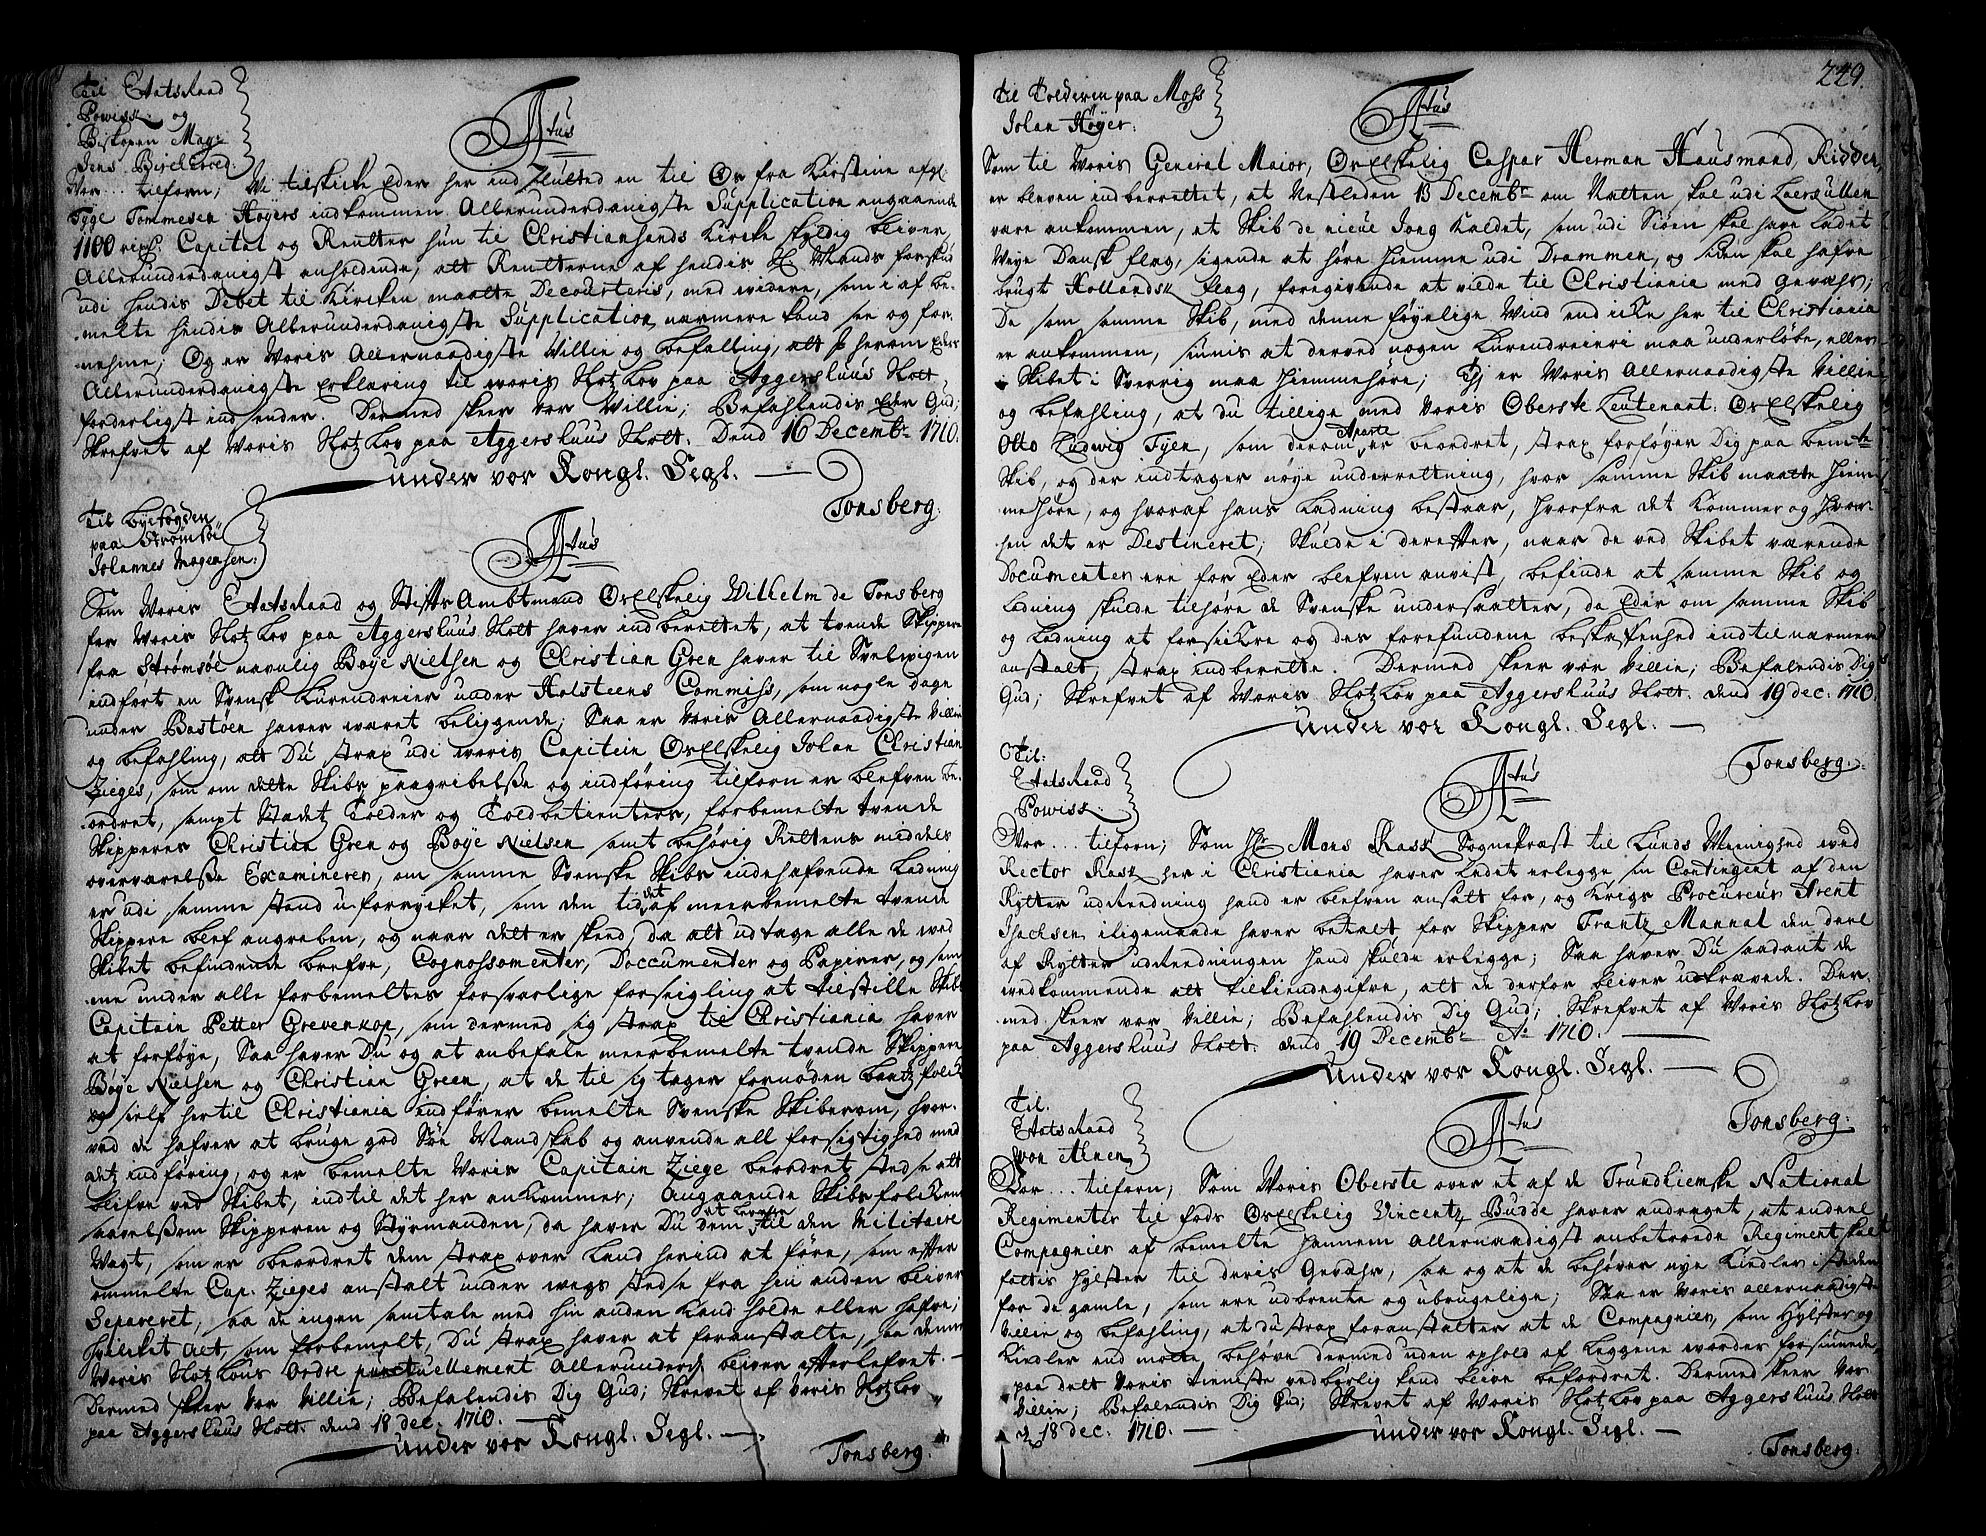 Til Etatsraad
Powisk og
Biskopen Mag:
Jens Birckerod.
Atus
Vor... tilforn; Vi tilskicke Eder her indsluted en til Os fra Kirstine afgl:
Tyge Tommesen Höyers indkommen Allerunderdanigste Supplication angaaende
1100 rixd. Capital og Rentter hun til Christiansands Kircke skyldig bliver,
Allerunderdanigst anholdende, att Rentterne af hendis Sl. Mands forskud
udi hendis Debet til Kircken maatte Decourteris, med widere, som i af be-
melte hendis Allerunderdanigste Supplication nærmere kand see og for-
nehme; Og er Voris Allernaadigste Villie og befalling, att I herom Eders
Allerunderdanigste Erklæring til woris Slotz Lov paa Aggershuus Slott
forderligst indsender. Dermed skeer Vor Willie; Befahlendis Eder Gud;
Skrefvet af Voris Slotz Lov paa Aggershuus Slott. Dend 16 Decembr. 1710.
under vor Kongl. Segl.
Tonsberg.
Til Byefogden
paa Strömsöe
Johannes Mogensen.
Atus
Som Voris Etatsraad og StiftsAmbtmand Os Elskelig Wilhelm de Tonsberg
for Voris Slotz Lov paa Aggershuus Slott haver indberettet, at tvende Skippere
fra Strömsöe navnlig Boye Nielsen og Christian Gren haver til Svelwigen
indfört en Svensk Kurendreier under Holsteens Commiss, som nogle dage
under Bastöen hawer wæret beliggende; Saa er Voris Allernaadigste Villie
og befahling, att Du strax udi woris Capitein Os Elskelig Johan Christian
Zieges, som om dette Skibs paagribelsse og indföring tilforn er blefven be-
ordret, sampt Stædet Tolder og Toldbetienters, forbemelte tvende
Skipperes Christian Gren og Boye Nielsen samt behörig Rettens middels
overværelsse Examinerer, om samme Svenske Skibs indehafvende Ladning
er udi samme stand uforrycket, som den tid det af meerbemelte tvende
Skippere blef angreben, og naar dett er skeed, da att udtage alle de wed
Skibet befindende brefve, Cognossomenter, Doccumenter og Papirer, og sam-
me under alle forbemeltes forsvarlige forseigling at tilstille Skibs
Capitain Petter Grevenkop, som dermed sig strax til Christiania haver
at forföye, Saa haver Du og at anbefale meerbemelte tvende Skippere
Boye Nielsen og Christian Green, at de til sig tager fornöden baadtzfolck
og self hertil Christiania indförer bemelte Svenske Skiberom, hvor-
ved de hafver at bruge god Söe Mandskab og anvende all forsigtighed med
detz indföring, og er bemelte Voris Capitain Ziege beordret stedse att
blifve ved Skibet, indtil det her ankommer; Angaaende Skibsfolckene
saavelssom Skipperen og Styrmanden, da haver Du dem at levere til den Militaire
Wagt, som er beordret dem strax over Land herind at före, som efter
ommelte Cap. Zieges anstalt under wegs stedse fra hin anden bliver
Separeret, saa de ingen samtale med hin anden kand holde eller hafve;
hvilcket alt, som forbemelt, Du strax haver at foranstalte, saa denne
Voris Slotz Lovs Ordre punctuellement Allerunderd. bliver efterlefvet.
Dermed skeer Vor Villie; Befalendis Dig Gud; Skrevet af Voris Slotz Lov
paa Aggershuus Slott. dend 18 dec. 1710.
under vor Kongl. Segl.
Tonsberg.
229.
Til Tolderen paa Moss
Johan Höyer.
Atus
Som til Voris General Maior, Os Elskelig Caspar Herman Hausmand, Ridder,
er bleven indberettet, at Nestleden 13 Decembr. om Natten skal udi Laersullen
være ankommen, et Skib de nieue Jong kaldet, som udi Siöen skal have ladet
Veye Dansk flag, sigende at höre hiemme udi Drammen, og siden skal hafve
brugt Hollandsk flag, foregivende at vilde til Christiania med Gevæhr;
De som samme Skib, med denne föyelige Wind end icke her til Christiania
er ankommen, siunis at derved nogen Kurendreieri maa underlöbe, eller
Skibet i Sverrig maa hiemmehöre; Thj er Voris Allernaadigste Villie
og befahling, at du tillige med Voris Oberste Leutenant Os Elskelig
Otto Ludwig Fyen, som derom aparte er beordret, strax forföyer Dig paa bemte.
Skib, og der indtager nöye underretning, hvor samme Skib maatte hiem-
mehöre, og hvoraf hans Ladning bestaar, hvorfra det kommer og hvor-
hen det er Destineret; Skulde i derefter, naar de ved Skibet værende
Documenter ere for Eder blefven anvist, befinde at samme Skib og
Ladning skulde tilhöre de Svenske undersaatter, da Eder om samme Skib
og Ladning at forsickre og der forefundene beskafenhed indtil nærmere
anstalt, strax indberette. Dermed skeer vor Villie; Befalendis Dig
Gud; Skrefvet af Woris Slotz Lov paa Aggershuus Slott. dend 19 dec. 1710
under vor Kongl. Segl.
Tonsberg.
Til:
Etatsraad
Powisk.
Atus
Vor... tilforn; Som Hr. Mons Rask Sognepræst til Lunds Menighed ved
Rector Rask her i Christiania haver ladet erlegge sin Contingent af den
Rytter udreedning hand er blefven ansatt for, og Krigs Procureur Arent
Jachsen iligemaade haver betalt for Skipper Frantz Mannal den deel
af Rytter udreedningen hand skulde erlegge; Saa haver Du saadant de
wedkommende att tilkiendegifve, att de derfor bliver ukrævede. Der
med skeer vor Villie; Befahlendis Dig Gud; Skrefvet af Voris Slotz Lov
paa Aggershuus Slott. dend 19 Decembr Ao 1710.
Under vor Kongl. Segl.
Tonsberg.
Til.
Etatsraad
von Ahnen
Atus
Vor... tilforn; Som Voris Oberste over et af de Trundhiemske National
Regimenter til fods Os Elskelig Vincentz Budde haver andraget, at endeel
Compagnier af bemelte hannem allernaadigst anbetroede Regiment skal
fattis hylster til deris Gevæhr, saa og at de behöver nye Kiedler i steden
for de gamle, som ere udbrente og ubrugelige; Saa er Voris allernaadigste
Villie og befahling, at du strax foranstalter at de Compagnier, som Hylster og
Kiedler end motte behöve dermed uden ophold af Leggene worder forsiunede,
paa dett Voris tieneste vedbörlig kand blive befordret. Dermed skeer Vor
Villie; Befalendis Dig Gud; Skrevet af Woris Slotz Lov paa Aggershuus Slott
d. 18 dec. 1710.
under vor Kongl. Segl.
Tonsberg.